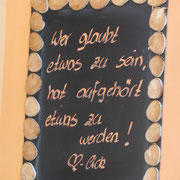 Wer glaubt
etwas zu sein,
hat aufgehört
etwas zu
werden!